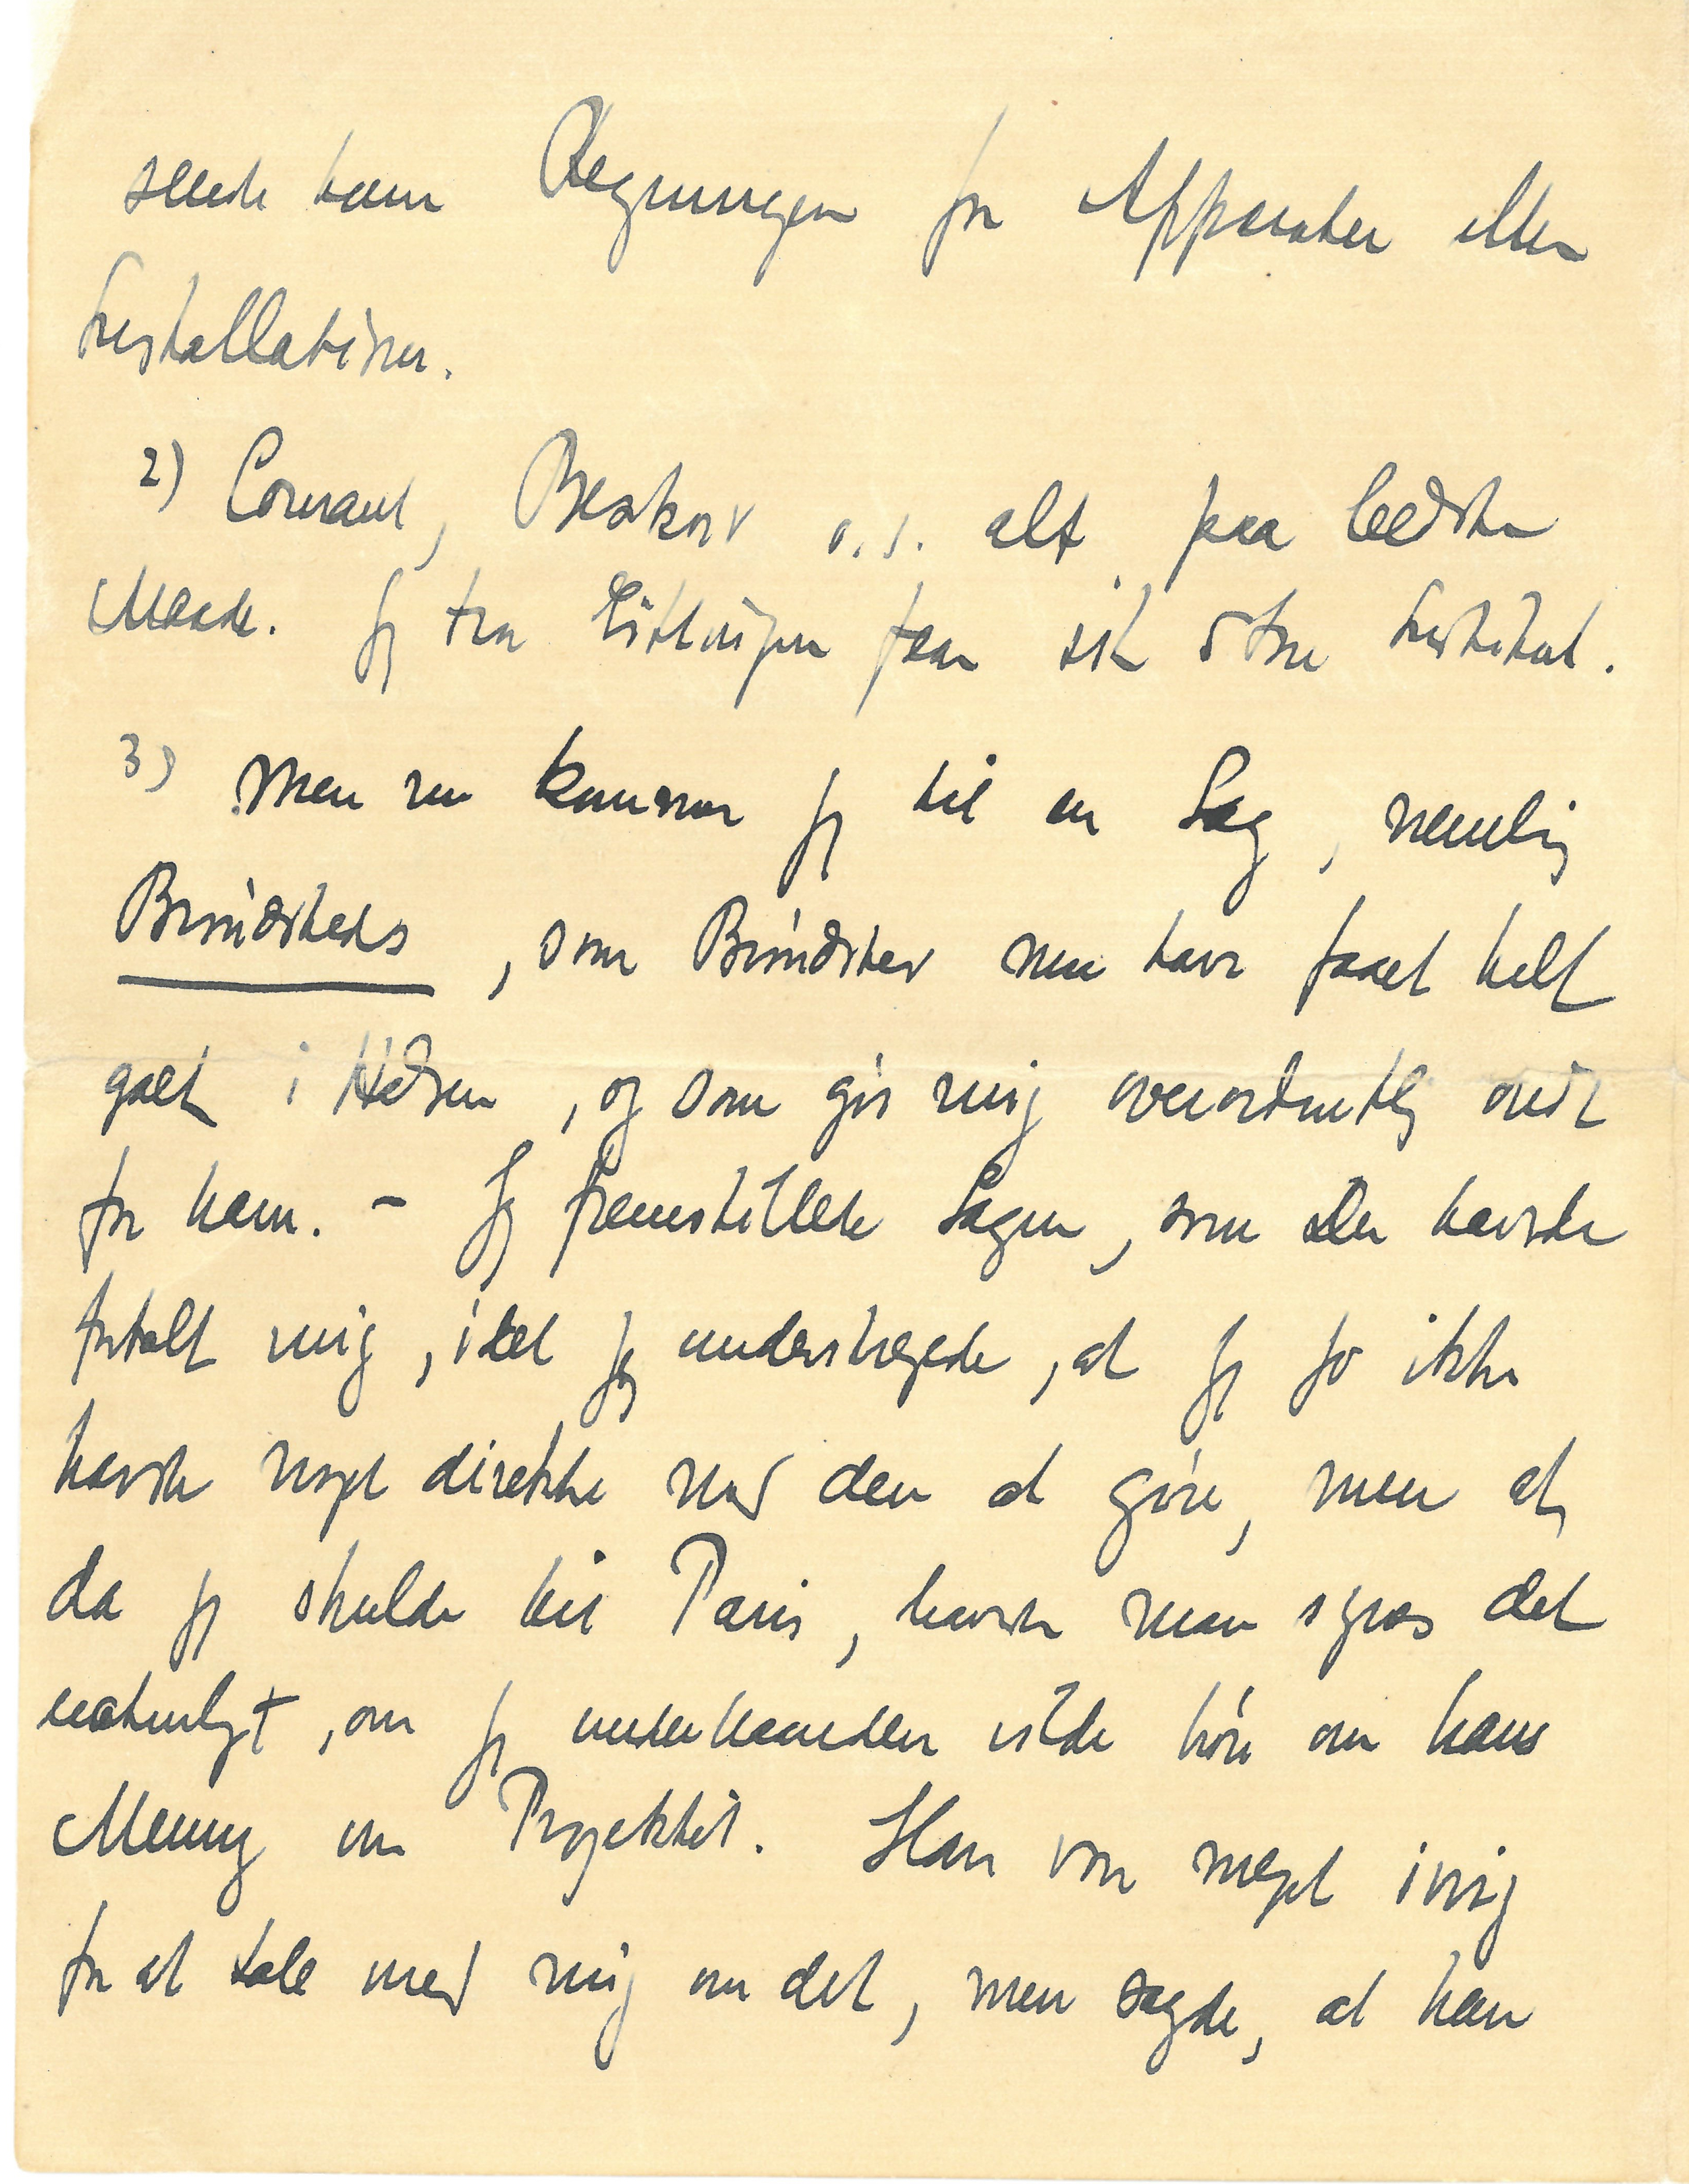 sende ham Regningen for Apparater eller
Installationer.
2) Courant, Beskow o.s. alt paa bedste
Maade. Jeg tror Göttingen faar sit store Institut.
3) Men nu kommer jeg til en Sag, nemlig
Brøndsteds, som Brøndsted nu har faaet helt
galt i Halsen, og som gør mig overordentlig ondt
for ham. – Jeg fremstillede Sagen, som De havde
fortalt mig, idet jeg understregede, at jeg jo ikke
havde noget direkte med den at gøre, men at
da jeg skulde til Paris, havde man synes det
naturligt, om jeg underhaanden vilde høre om hans
Mening om Projektet. Han var meget ivrig
for at tale med mig om det, men sagde, at han